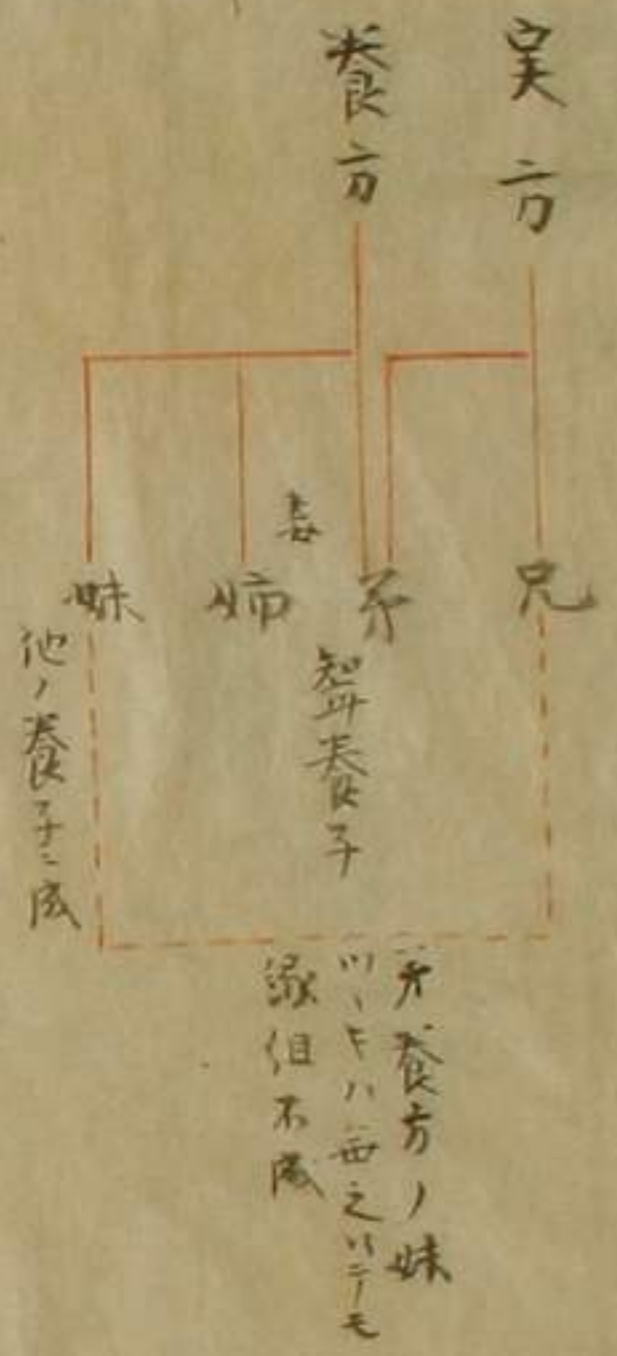 実方
養方
兄
弟
聟養子
妻
姉
妹
他ノ養子ニ成
弟養方ノ妹
ツヽキハ無之候ヘ𪜈
縁組不成